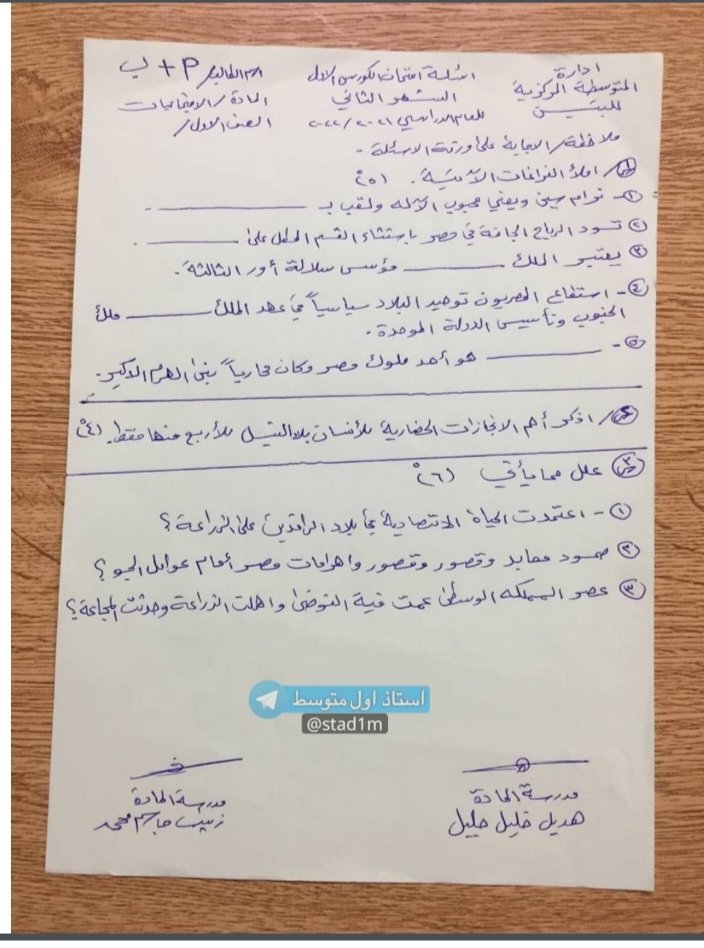 ادارة
المتوسطة المركزية
للبنين
اسئلة امتحان الكورس الاول
الشهر الثاني
للعام الدراسي ٢٠٢١/٢٠٢٢
اسم الطالب/ أ + ب
المادة/ الاجتماعيات
الصف الاول/
ملاحظة/ الاجابة على ورقة الاسئلة -
س١/ املأ الفراغات الآتية. (٥°)
١- نرام سين ويعني محبوب الآله ولقب بـ ـــــــ .
٢ تسود الرياح الجافة في مصر باستثناء القسم المطل على ـــــــ .
٣ يعتبر الملك ـــــــ مؤسس سلالة أور الثالثة.
٤- استطاع المصريون توحيد البلاد سياسياً في عهد الملك ـــــــ ملك
الجنوب وتأسيس الدولة الموحدة.
٥- ـــــــ هو أحد ملوك مصر وكان محارباً بنى الهرم الاكبر.
س٢/ اذكر أهم الانجازات الحضارية للأنسان بلاد النيل للأربع منها فقط. (٤°)
س٣ علل مما يأتي (٦°)
١- اعتمدت الحياة الاقتصادية في بلاد الرافدين على الزراعة؟
٢ صمود معابد وقصور وقصور واهرامات مصر أمام عوامل الجو؟
٣ عصر المملكه الوسطى عمت فية الفوضى واهلت الزراعة وحدثت المجاعة؟
استاذ اول متوسط
@stad1m
مدرسة المادة
هديل خليل جليل
مدرسة المادة
زينب جاسم محمد